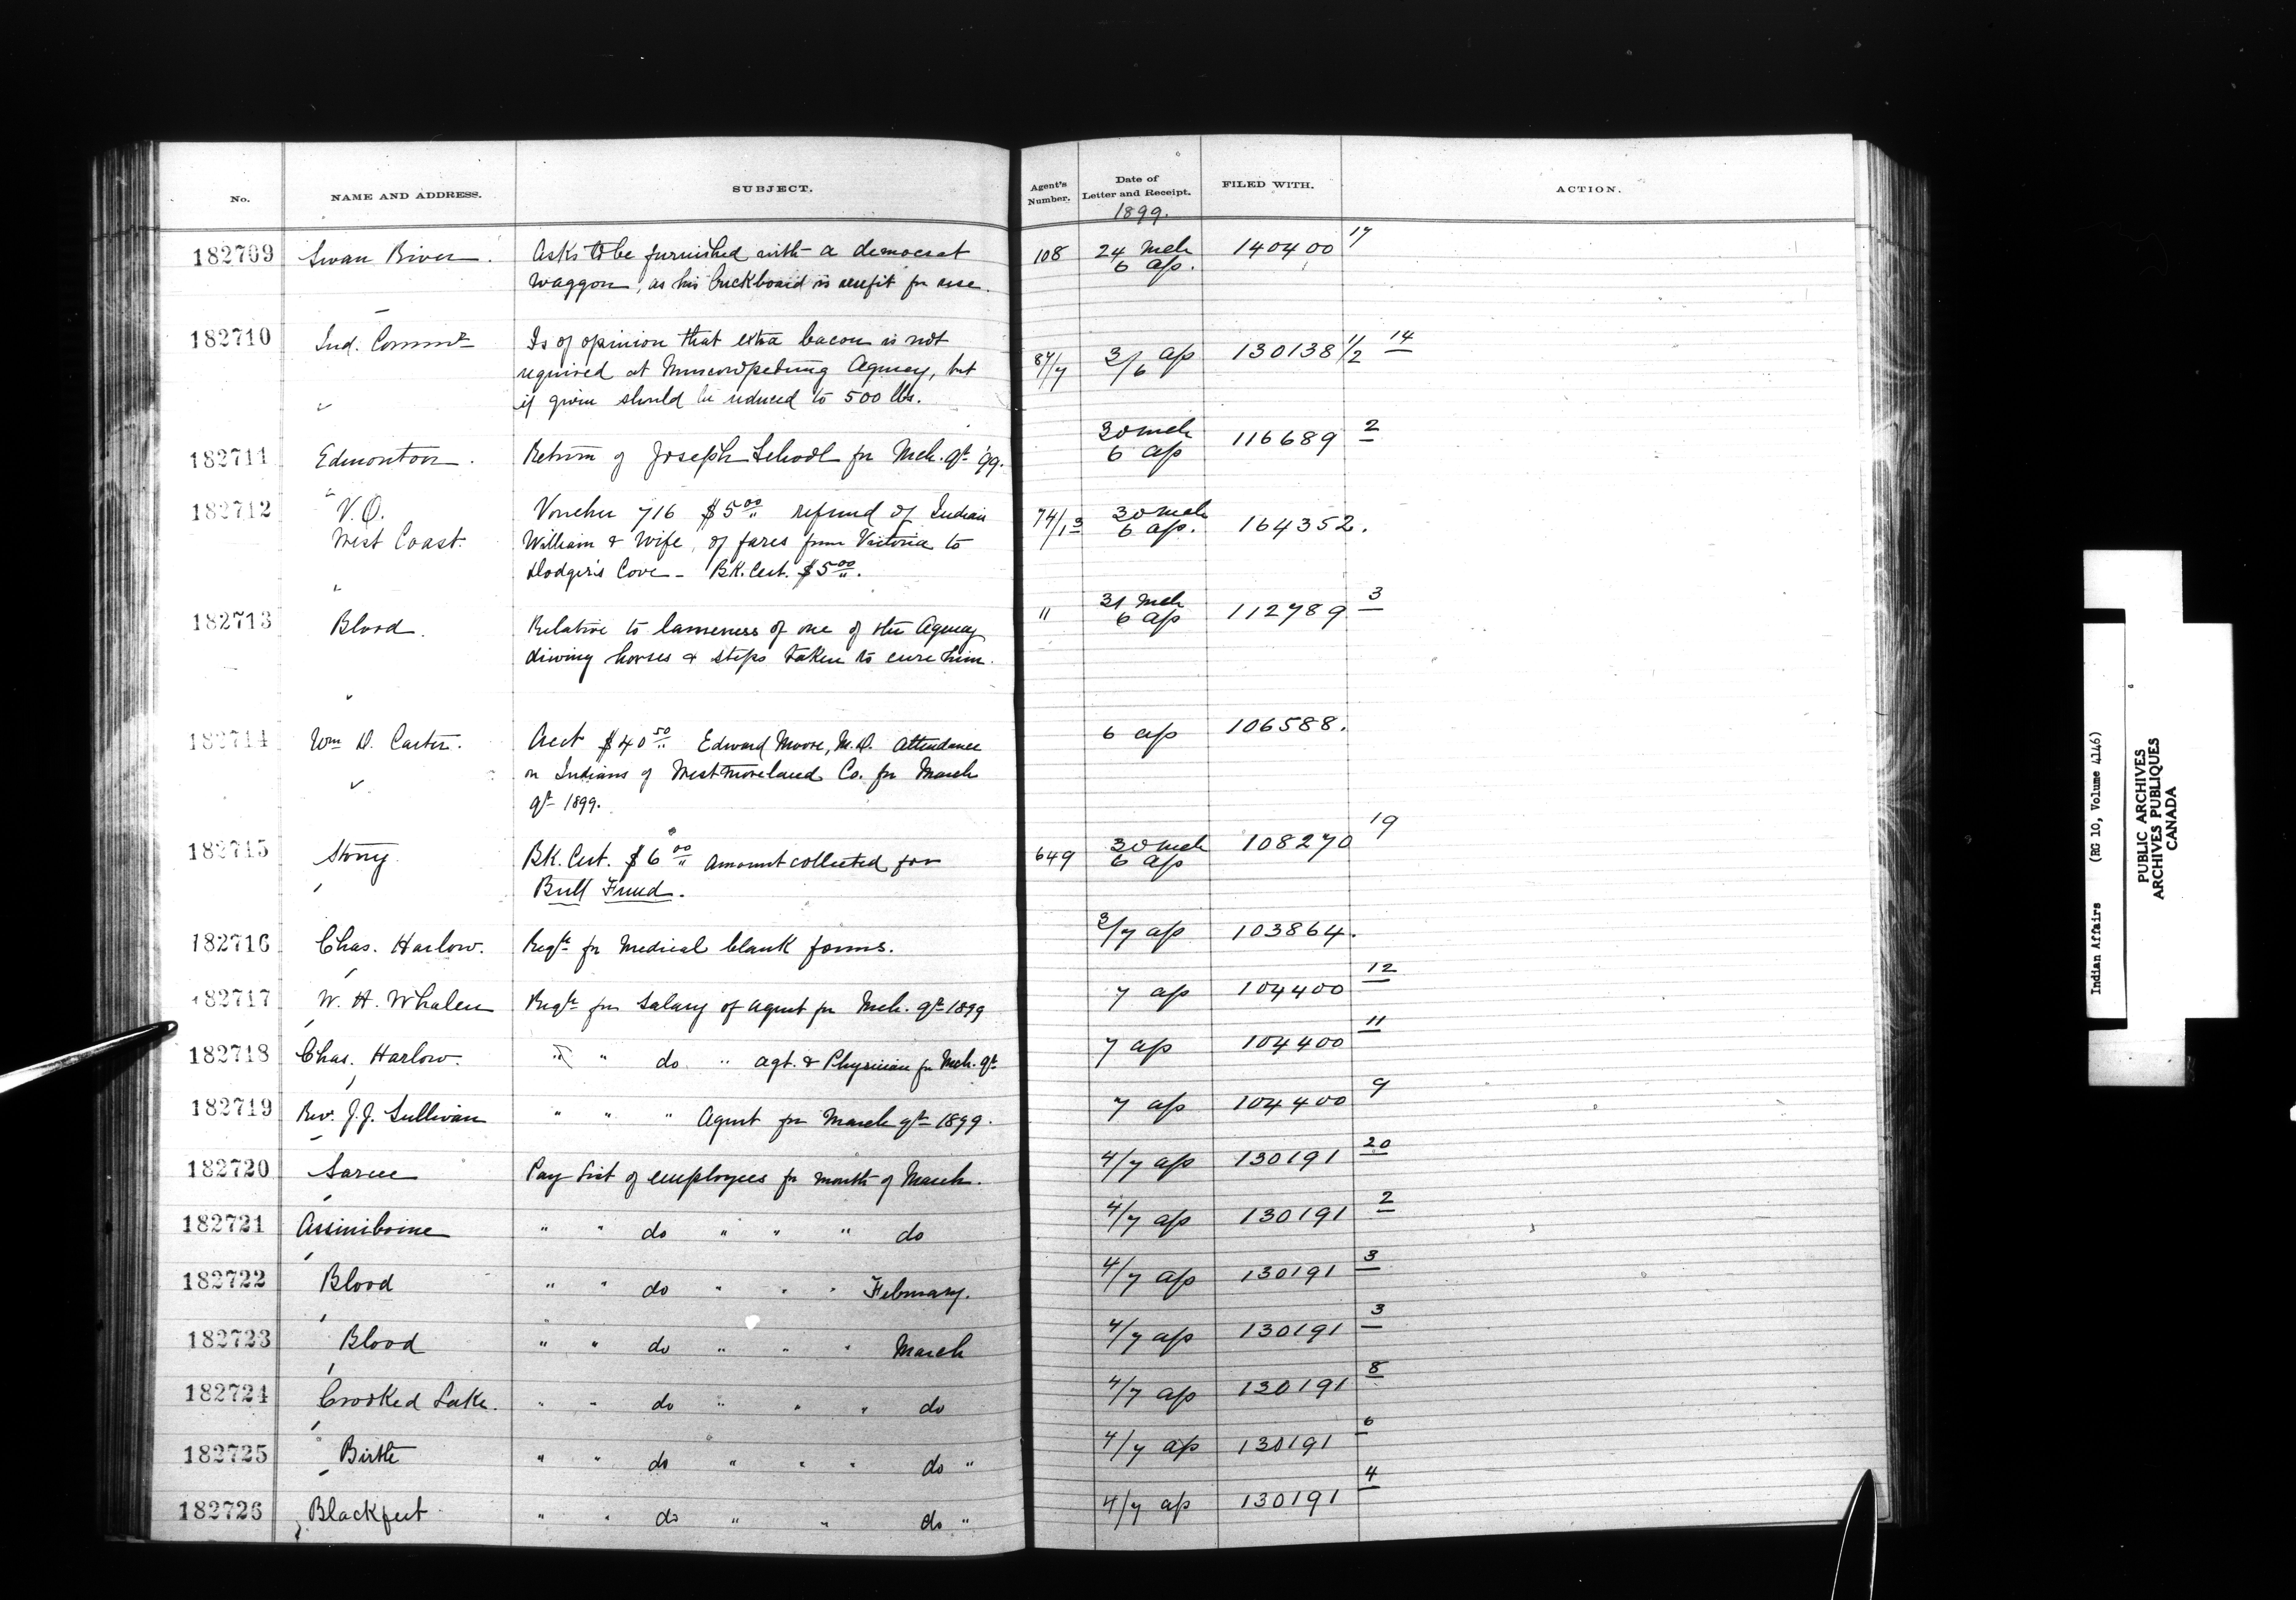 No. NAME AND ADDRESS. SUBJECT. Agent's Number. Date of Letter and Receipt. FILED WITH. ACTION.
1899.
182709 Swan River. Asks to be furnished with a democrat 108 24 Mch 140400 17
waggon, as his buckboard is unfit for use. 6 ap.
182710 Ind. Commr Is of opinion that extra bacon is not 87/7 3/6 ap 130138 1/2 14
required at Muscowpetung Agency, but
if given should be reduced to 500 lbs.
182711 Edmonton. Return of Joseph School for Mch. qt '99. 30 mch 116689 2
6 ap
182712 V.O. Voucher 716 $5 00 refund of Indian 74/13 30 mch 164352.
West Coast. William & Wife, of fares from Victoria to 6 ap.
Dodger's Cove - BK. Cert. $5 00.
182713 Blood. Relative to lameness of one of the Agency " 31 Mch 112789 3
driving horses & steps taken to cure him. 6 ap
182714 Wm D. Carter. Acct $40 50 Edward Moore, M.D. Attendance 6 ap 106588.
on Indians of Westmoreland Co. for March
qt 1899.
182715 Stony. BK. Cert. $6 00 Amount collected for 649 30 mch 108270 19
Bull Fund. 6 ap
182716 Chas. Harlow. Reqte for Medical blank forms. 3/7 ap 103864.
182717 W. H. Whalen Reqte for Salary of agent for Mch. qt 1899 7 ap 104400 12
182718 Chas. Harlow. " " do " agt. & Physician for Mch. qt 7 ap 104400 11
182719 Rev. J.J. Sullivan " " " Agent for March qt 1899. 7 ap 104400 9
182720 Sarcee Pay list of employees for month of March. 4/7 ap 130191 20
182721 Assiniboine " " do " " " do 4/7 ap 130191 2
182722 Blood " " do " " " February. 4/7 ap 130191 3
182723 Blood " " do " " " March 4/7 ap 130191 3
182724 Crooked Lake. " " do " " " do 4/7 ap 130191 8
182725 Birtle " " do " " " do " 4/7 ap 130191 6
182726 Blackfeet " " do " " do " 4/7 ap 130191 4
Indian Affairs (RG 10, Volume 4146)
PUBLIC ARCHIVES
ARCHIVES PUBLIQUES
CANADA